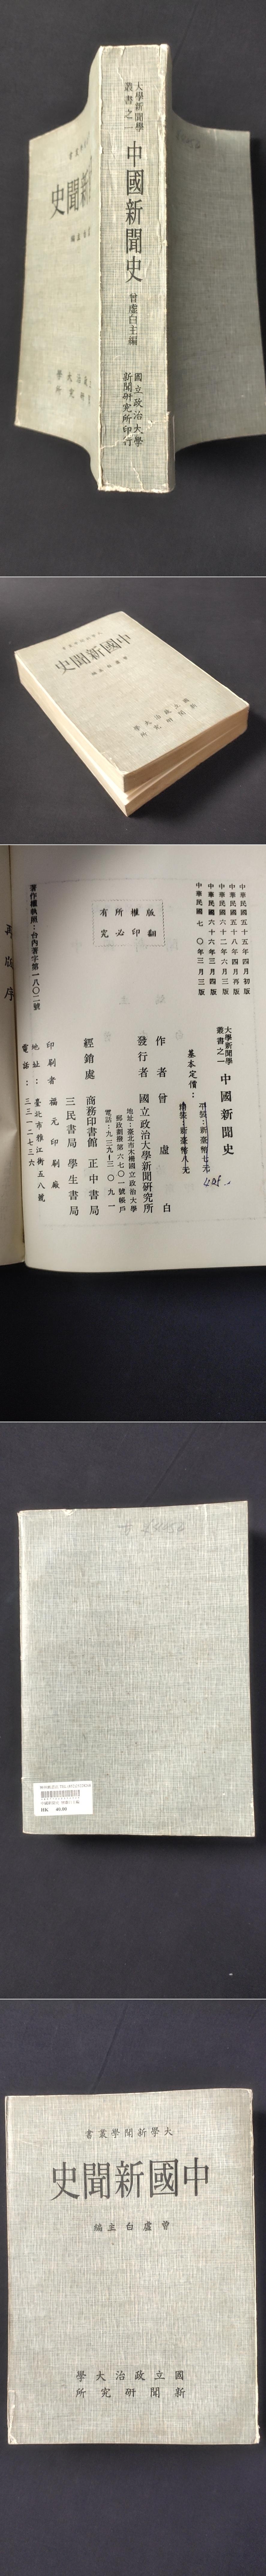 大學新聞學
叢書之一
中國新聞史
曾虛白主編
國立政治大學
新聞研究所印行
中國新聞史
中華民國五十五年四月初版
中華民國五十八年四月再版
中華民國六十二年六月三版
中華民國六十六年三月四版
中華民國七〇年三月三版
版權所有
翻印必究
大學新聞學
叢書之一
中國新聞史
基本定價：
平裝：新臺幣七元
精裝：新臺幣八元
作者 曾虛白
發行者 國立政治大學新聞研究所
地址：臺北市木柵國立政治大學
郵政劃撥第六七〇一號帳戶
電話：九三九三〇九一
經銷處 商務印書館 正中書局
三民書局 學生書局
印刷者 福元印刷廠
地址：臺北市雅江街五八號
電話：三三一二七三六
著作權執照：台內著字第一八〇二號
再版序
HK 40.00
大學新聞學叢書
中國新聞史
曾虛白主編
國立政治大學
新聞研究所